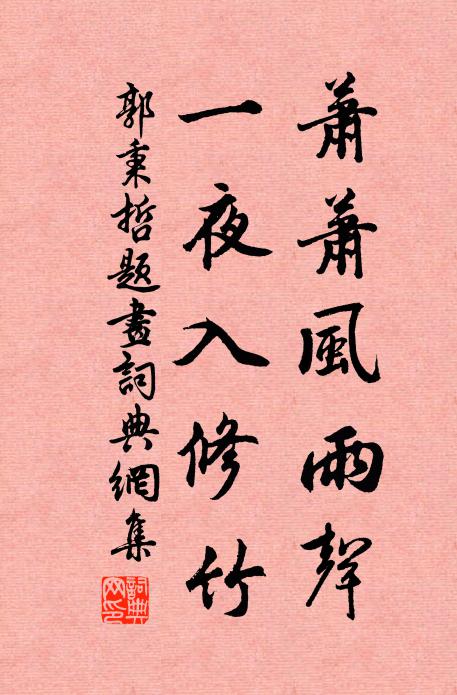 蕭蕭風雨聲
一夜入修竹
郭秉哲題畫詞典網集
詞典網印